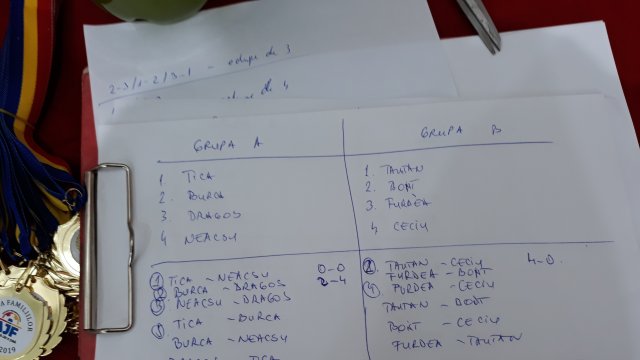 2-3/1-2/3-1 - echipe de 3
de 4
GRUPA A
GRUPA B
1 TICA
2. BURCA
3. DRAGOS
4 NEACSU
1. TAUTAN
2. BONT
3. FURDEA
4 CECIU
1 TICA - NEACSU 0-0
2 BURCA - DRAGOS 2-4
3 NEACSU - DRAGOS
TICA - BURCA
BURCA - NEACSU
DRAGOS - TICA
2. TAUTAN - CECIU 4-0.
FURDEA - BONT
4 FURDEA - CECIU
TAUTAN - BONT
BONT - CECIU
FURDEA - TAUTAN
FAMILIILOR
AJF
2019